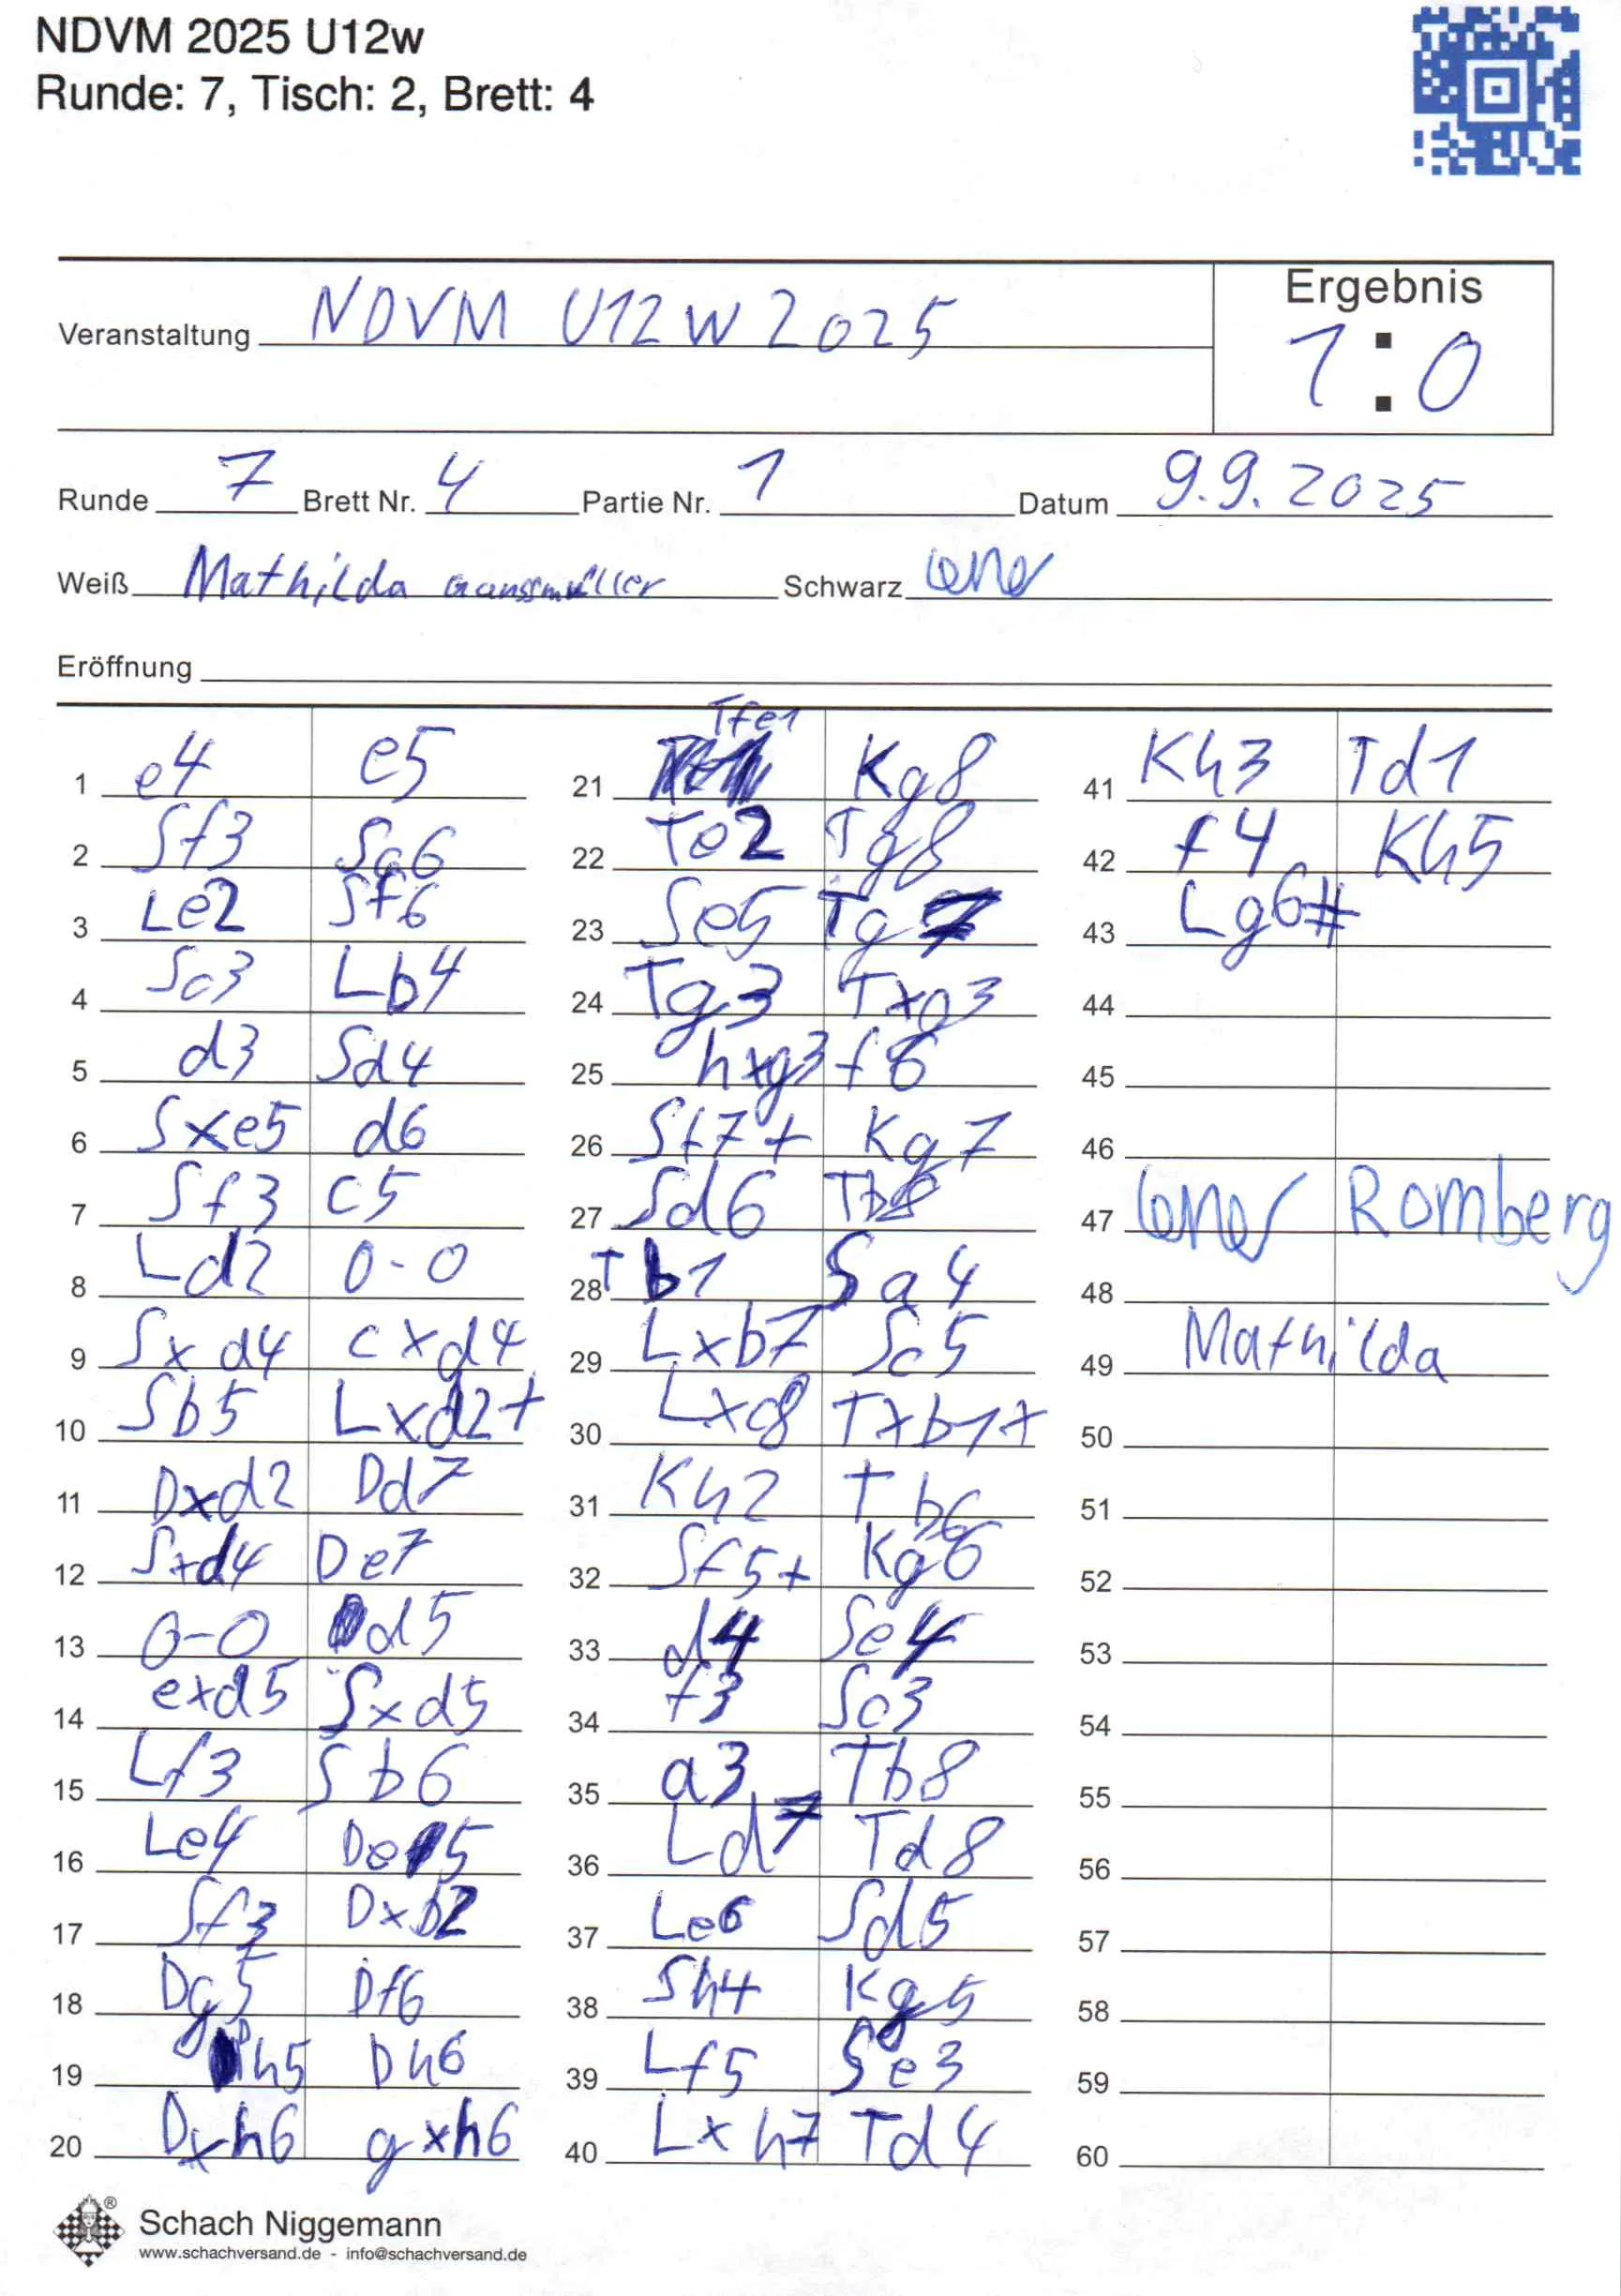 NDVM 2025 U12w
Runde: 7, Tisch: 2, Brett: 4
Ergebnis
Veranstaltung NDVM U12W 2025
1:0
Runde 7 Brett Nr. 4 Partie Nr. 1 Datum 9.9.2025
Weiß Mathilda Ganssmüller Schwarz
Eröffnung
1 e4 e5
2 Sf3 Sc6
3 Le2 Sf6
4 Sc3 Lb4
5 d3 Sd4
6 Sxe5 d6
7 Sf3 c5
8 Ld2 0-0
9 Sxd4 cxd4
10 Sb5 Lxd2+
11 Dxd2 Dd7
12 Sxd4 De7
13 0-0 d5
14 exd5 Sxd5
15 Lf3 Sb6
16 Le4 De5
17 Sf3 Dxb2
18 Dg5 Df6
19 Dh5 Dh6
20 Dxh6 gxh6
21 Tfe1 Kg8
22 Te2 Tg8
23 Se5 Tg7
24 Tg3 Txg3
25 hxg3 f6
26 Sf7+ Kg7
27 Sd6 Tb8
28 Tb1 Sa4
29 Lxb7 Sc5
30 Lxc8 Txb1+
31 Kh2 Tb6
32 Sf5+ Kg6
33 d4 Se4
34 f3 Sc3
35 a3 Tb8
36 Ld7 Td8
37 Le6 Sd5
38 Sh4 Kg5
39 Lf5 Se3
40 Lxh7 Td4
41 Kh3 Td1
42 f4 Kh5
43 Lg6#
44
45
46
47 Romberg
48
49 Mathilda
50
51
52
53
54
55
56
57
58
59
60
Schach Niggemann
www.schachversand.de - info@schachversand.de